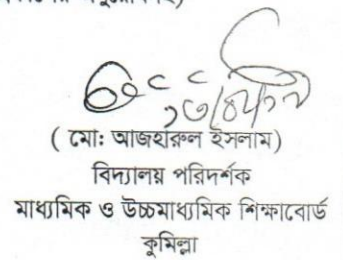 ( মো: আজহারুল ইসলাম)
বিদ্যালয় পরিদর্শক
মাধ্যমিক ও উচ্চমাধ্যমিক শিক্ষাবোর্ড
কুমিল্লা